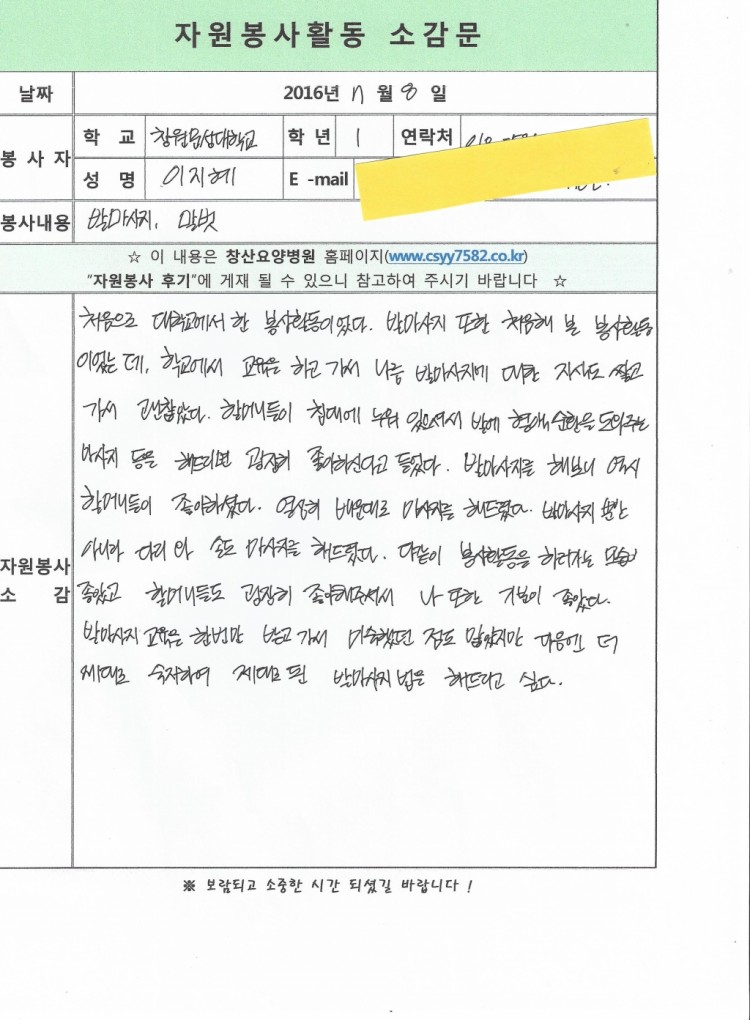 자원봉사활동 소감문
날짜 2016년 7월 8일
봉사자 학교 창원문성대학교 학년 1 연락처 010
성명 이지혜 E-mail
봉사내용 발마사지, 말벗
☆ 이 내용은 창산요양병원 홈페이지(www.csyy7582.co.kr)
"자원봉사 후기"에 게재 될 수 있으니 참고하여 주시기 바랍니다 ☆
자원봉사 소감
처음으로 대학교에서 한 봉사활동이었다. 발마사지 또한 처음해 본 봉사활동
이었는데, 학교에서 교육을 하고 가서 나름 발마사지에 대한 지식도 쌓고
가서 괜찮았다. 할머니들이 침대에 누워 있으셔서 발에 혈액순환을 도와주는
마사지 등을 해드리면 굉장히 좋아하신다고 들었다. 발마사지를 해보니 역시
할머니들이 좋아하셨다. 열심히 배운대로 마사지를 해드렸다. 발마사지 뿐만
아니라 다리와 손도 마사지를 해드렸다. 다같이 봉사활동을 하려자는 모습이
좋았고 할머니들도 굉장히 좋아해주셔서 나 또한 기분이 좋았다.
발마사지 교육은 한번만 받고 가서 미숙했던 점도 많았지만 다음엔 더
제대로 숙지하여 제대로 된 발마사지법을 해드리고 싶다.
※ 보람되고 소중한 시간 되셨길 바랍니다 !